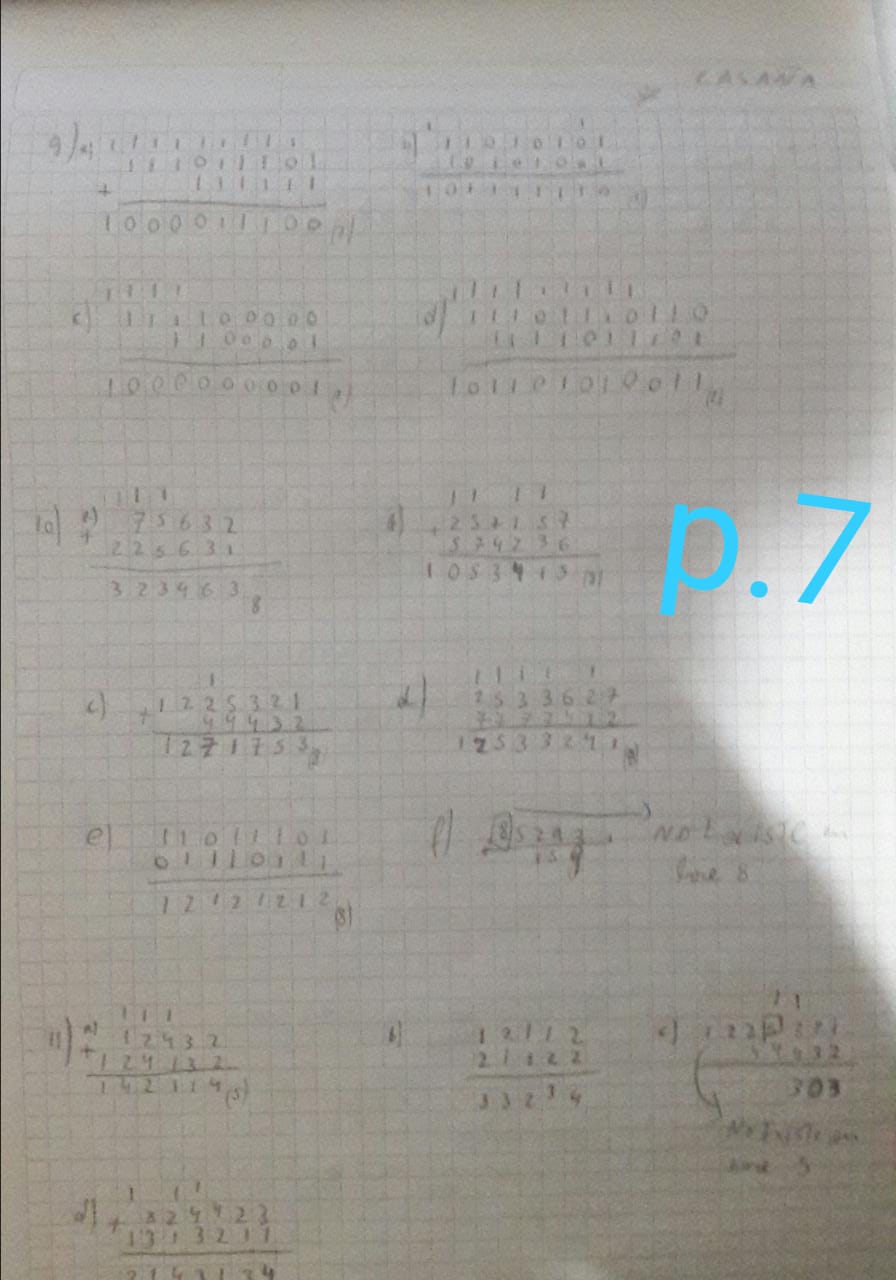 CASAÑA
9) a) 1 1 1 1 1 1 1 1 1
1 1 1 0 1 1 1 0 1
+ 1 1 1 1 1 1
1 0 0 0 0 1 1 1 0 0 (2)
b) 1 1
1 1 0 1 0 1 0 1
1 0 1 0 1 0 0 1
1 0 1 1 1 1 1 1 0
c) 1 1 1 1
1 1 1 1 0 0 0 0 0
1 1 0 0 0 0 1
1 0 0 0 0 0 0 0 0 1
d) 1 1 1 1 1 1 1 1
1 1 1 0 1 1 1 0 1 1 0
1 1 1 1 0 1 1 1 0 1
1 0 1 1 0 1 0 1 0 0 1 1 (2)
10) a) 1 1 1
+ 7 5 6 3 2
2 2 5 6 3 1
3 2 3 4 6 3 8
b) 1 1 1 1
+ 2 5 7 1 5 7
5 7 4 2 3 6
1 0 5 3 4 1 5 (8)
c) 1
+ 1 2 2 5 3 2 1
4 4 4 3 2
1 2 7 1 7 5 3
d) 1 1 1 1 1
2 5 3 3 6 2 7
7 7 7 7 4 1 2
1 2 5 3 3 2 4 1 (8)
e) 1 1 0 1 1 1 0 1
0 1 1 1 0 1 1 1
1 2 1 2 1 2 1 2 (8)
f) 8 5 2 9 3
1 5 9
No
8
11) a) 1 1 1
+ 1 2 4 3 2
1 2 4 1 3 2
1 4 2 1 1 4 (5)
b) 1 2 1 1 2
2 1 1 2 2
3 3 2 3 4
c) 1 1
1 2 2 5 3 2 1
4 4 4 3 2
3 0 3
No Existe en
base 5
d) 1 1 1
+ 3 2 4 4 2 3
1 3 1 3 2 1 1
2 1 4 3 1 3 4
p.7